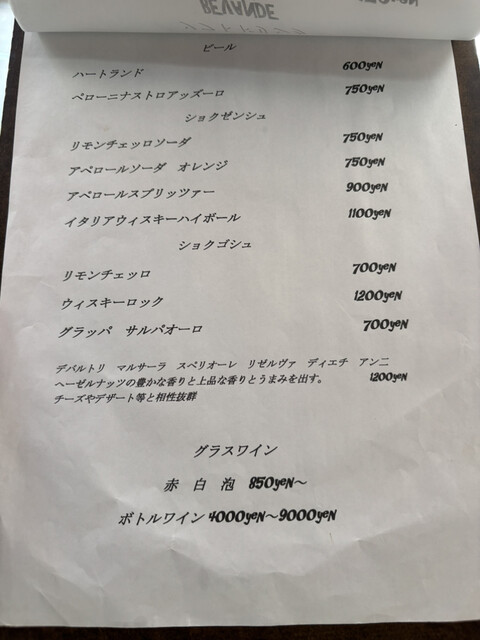 BEVANDE
ソフトドリンク
ビール
ハートランド 600yeN
ペローニナストロアッズーロ 750yeN
ショクゼンシュ
リモンチェッロソーダ 750yeN
アペロールソーダ オレンジ 750yeN
アペロールスプリッツァー 900yeN
イタリアウィスキーハイボール 1100yeN
ショクゴシュ
リモンチェッロ 700yeN
ウィスキーロック 1200yeN
グラッパ サルパオーロ 700yeN
デバルトリ マルサーラ スペリオーレ リゼルヴァ ディエチ アンニ
ヘーゼルナッツの豊かな香りと上品な香りとうまみを出す。 1200yeN
チーズやデザート等と相性抜群
グラスワイン
赤 白 泡 850yeN～
ボトルワイン 4000yeN～9000yeN